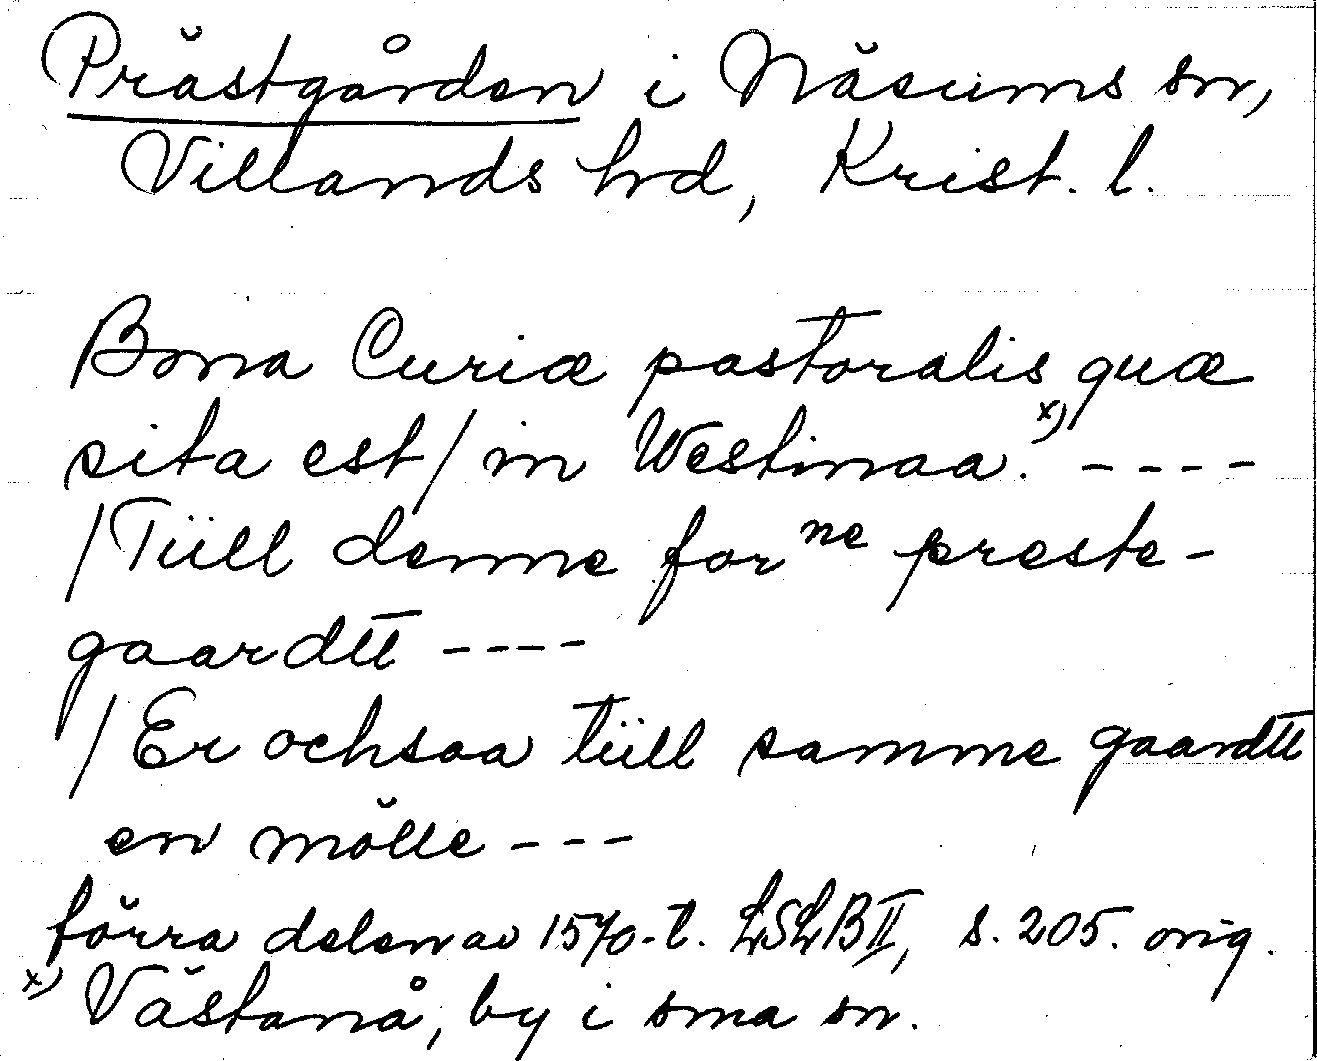 Prästgården i Näsums sn,
Villands hd, Krist. l.
Bona Curiæ pastoralis quæ
sita est / in Westinaa. x) ----
/ Tüll denne for ne preste-
gaardtt ----
/ Er ochsaa tüll samme gaardtt
en mölle ---
förra delen av 1570-t. LSLB II, s. 205. orig.
x) Västanå, by i sma sn.